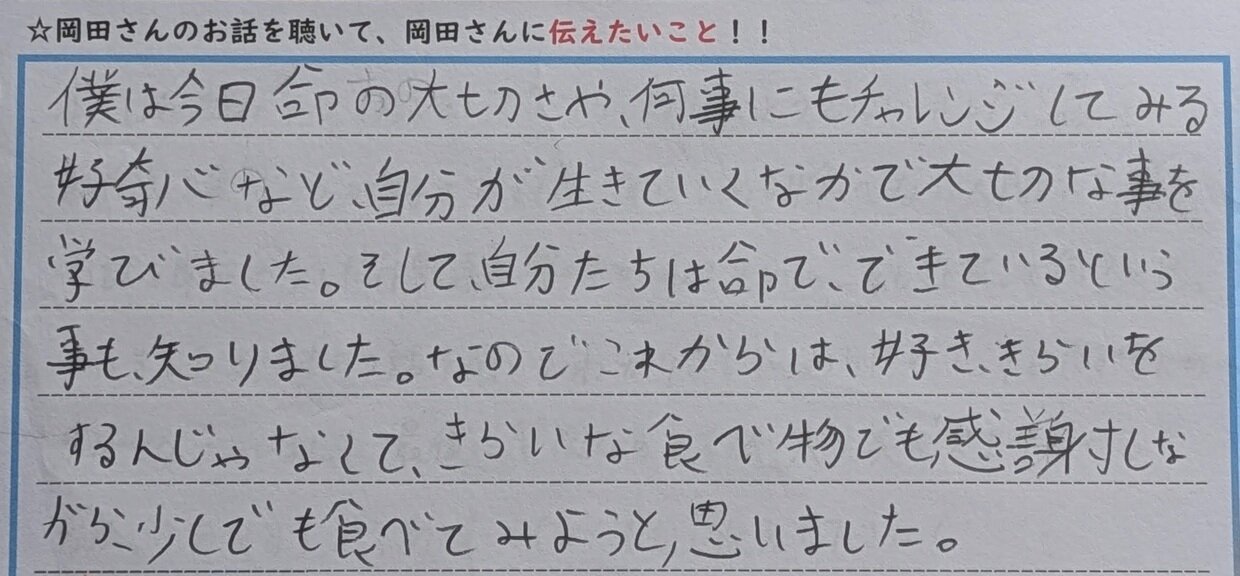 ☆岡田さんのお話を聴いて、岡田さんに伝えたいこと！！
僕は今日命の大切さや、何事にもチャレンジしてみる
好奇心など、自分が生きていくなかで大切な事を
学びました。そして、自分たちは命で、できているという
事も、知りました。なのでこれからは、好き、きらいを
するんじゃなくて、きらいな食べ物でも、感謝しな
がら、少しでも食べてみようと、思いました。